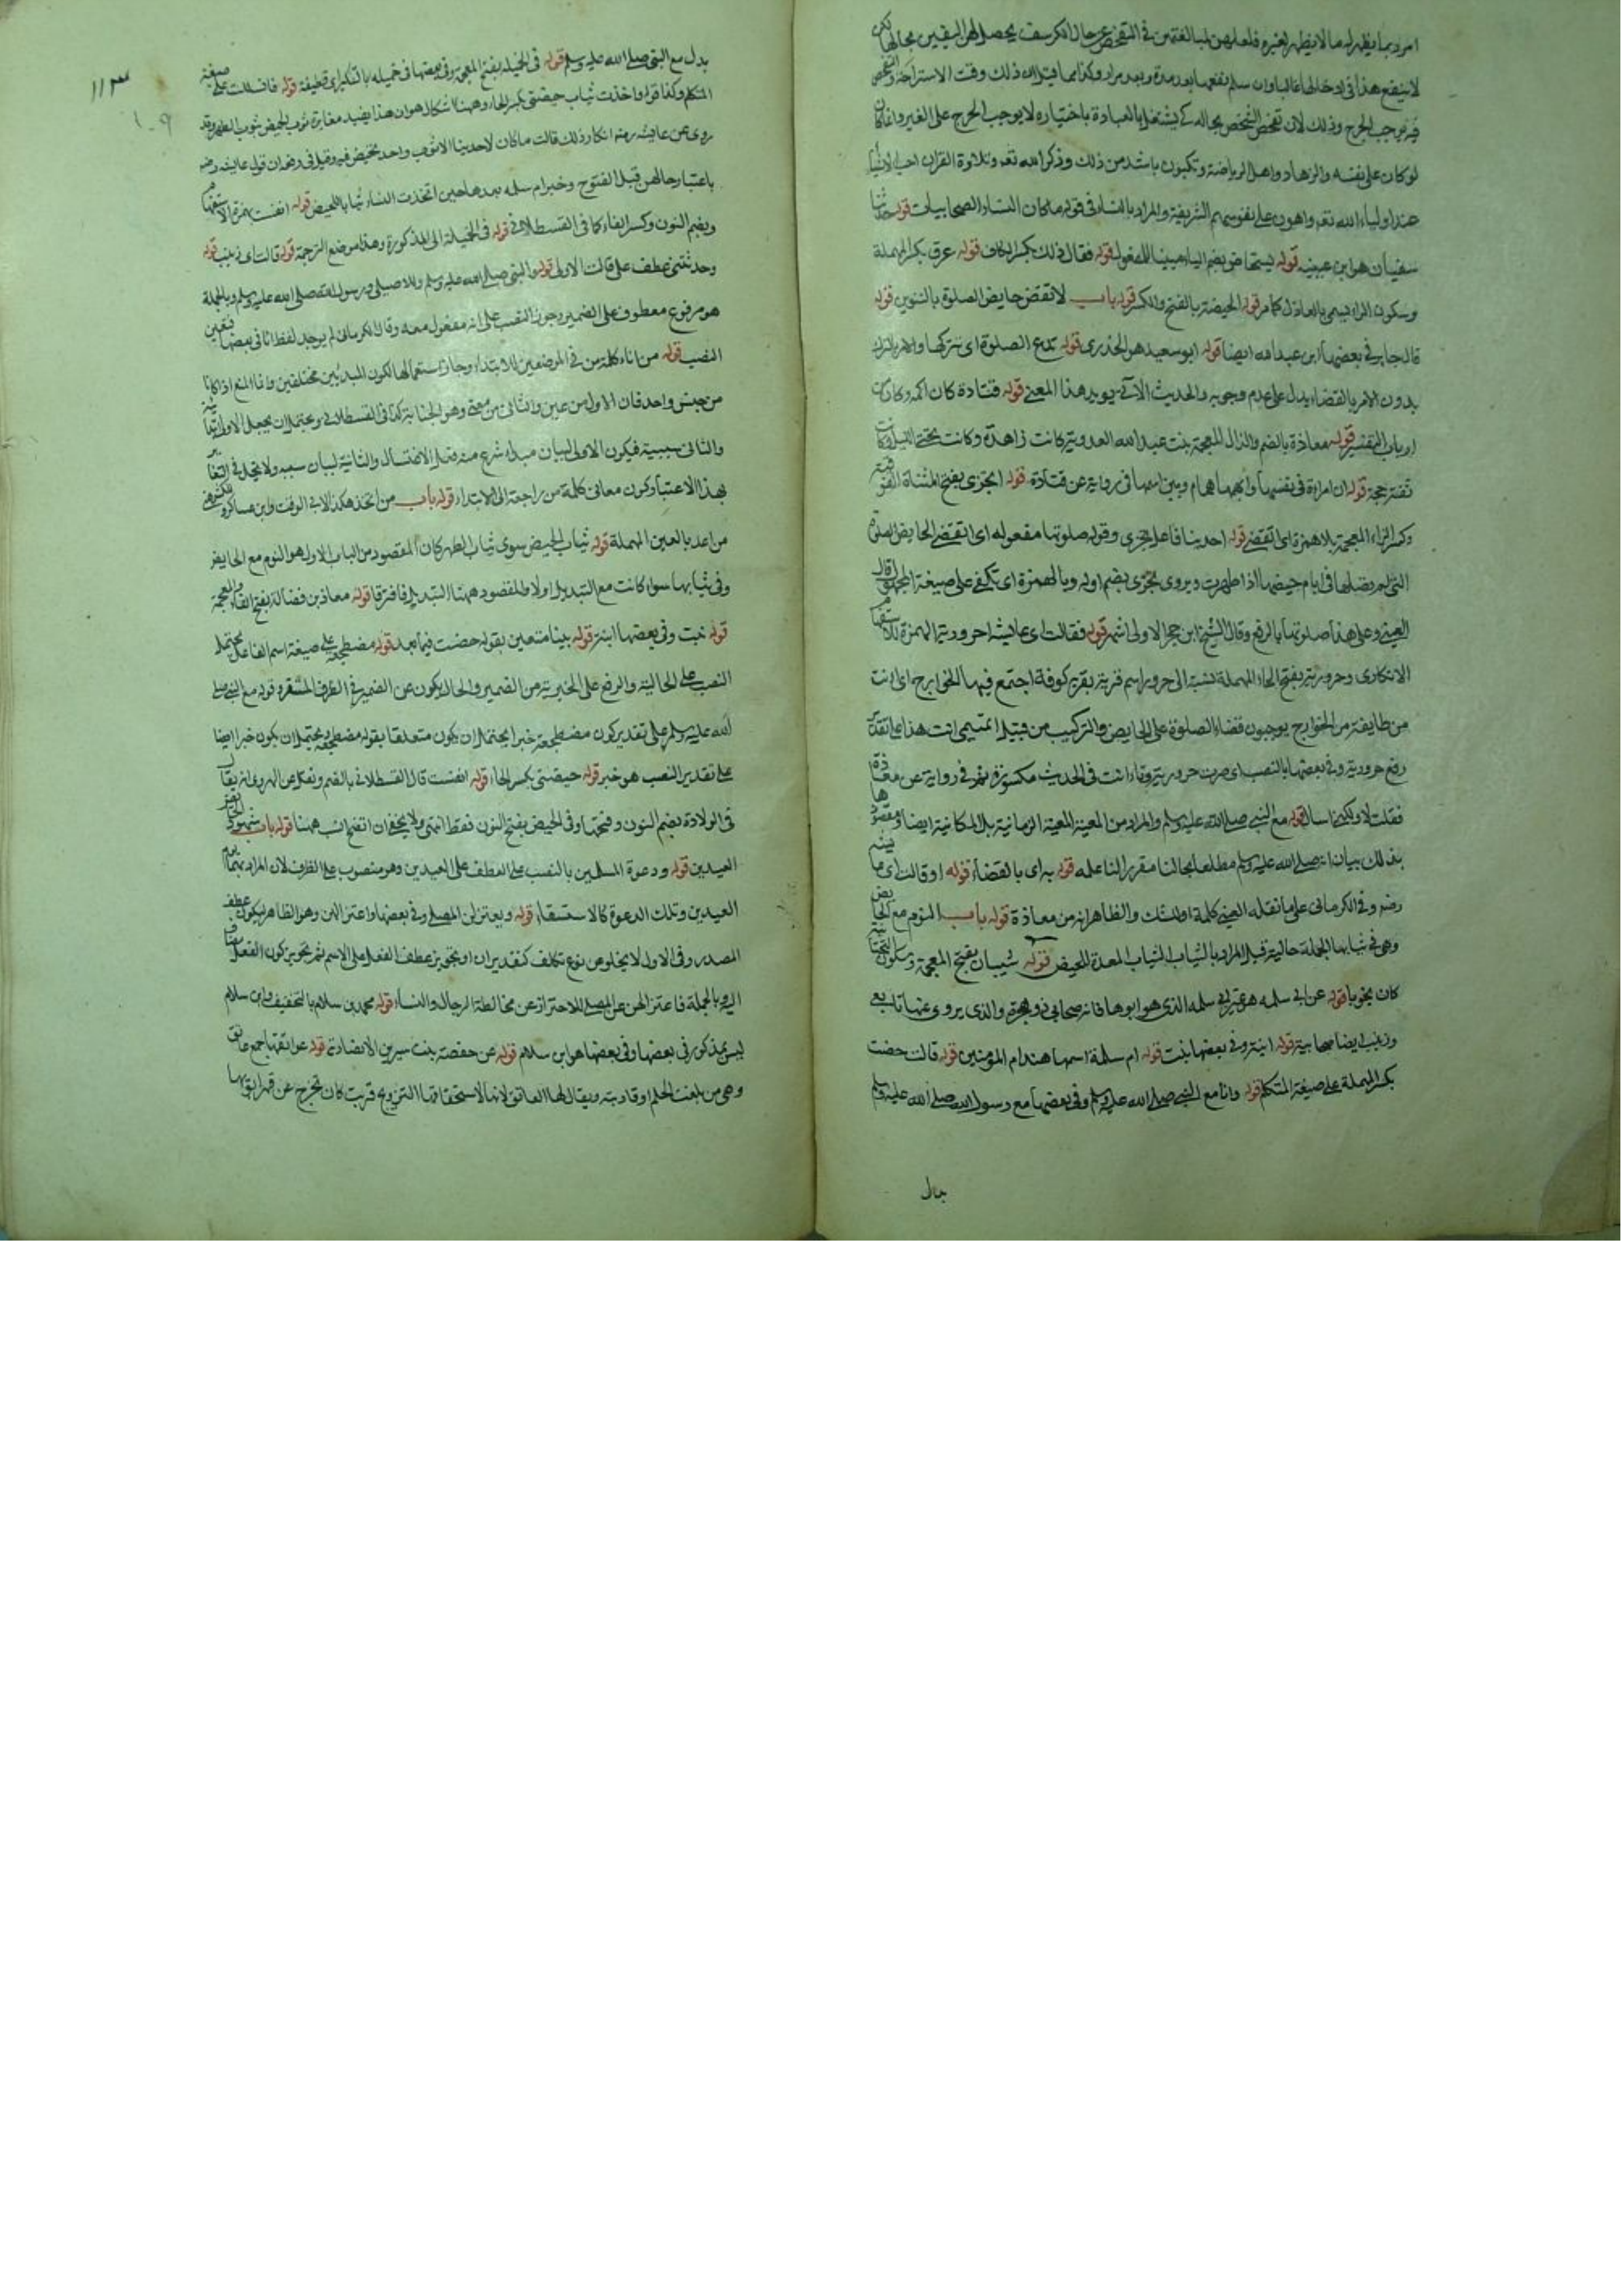 امر ربما يظهر له ما لا يظهر لغيره فلعلهن لمبالغتهن في التفحص عن حال الكرسف يحصل لهن اليقين بحالها لكن
لا ينفع هذا في ادخالها غالبا وان سلم نفعها بعد مدة وبعد مرار وكذا ما قيل ان ذلك وقت الاستراحة والتفحص
فيه يوجب الحرج وذلك لان تفحص الشخص بحاله كي يشتغل بالعبادة باختياره لا يوجب الحرج على الغير وان كان
لو كان على نفسه والزهاد واهل الرياضة يرتكبون باشد من ذلك وذكر الله تعه وتلاوة القران احب الاشيا
عند اولياء الله تعه واهون على نفوسهم الشريفة والمراد بالنساء في قوله ما كان النساء الصحابيات قوله حدثنا
سفيان هو ابن عيينه قوله يستحاض بضم الياء مبينا للمفعول قوله فقال ذلك بكسر الكاف قوله عرق بكسر المهملة
وسكون الراء يسمى بالعاذل كما مر قوله الحيضة بالفتح والكسر قوله باب لا تقض حايض الصلوة بالتنوين قوله
قال جابر في بعضها ابن عبد الله ايضا قوله ابو سعيد هو الخدري قوله تدع الصلوة اي تتركها والامر بالترك
بدون الامر بالقضاء يدل على عدم وجوبه والحديث الاتي يويد هذا المعنى قوله قتادة كان اكمه وكان من
ارباب التفسير قوله معاذة بالضم والذال المعجمة بنت عبد الله العدوية كانت زاهدة وكانت تحيى الليل وكانت
ثقة حجة قوله ان امراة في بعضها وابهمها همام وبين اسمها في رواية عن قتادة قوله اتجزى بفتح المثناة الفوقية
وكسر الزاء المعجمة بلا همزة اي اتقضي قوله احدينا فاعل تجزى وقوله صلوتها مفعوله اي اتقضي الحايض الصلوة
التي لم تصلها في ايام حيضها اذا طهرت ويروى تجزى بضم اوله وبالهمزة اي تكفي على صيغة المجهول قال
العيني وعلى هذا صلوتها بالرفع وقال الشيخ ابن حجر الاولى اشهر قوله فقالت اي عايشة احرورية الهمزة للاستفهام
الانكاري وحرورية بفتح الحاء المهملة نسبة الى حرورا اسم قرية بقرب كوفة اجتمع فيها الخوارج اي انت
من طايفة من الخوارج يوجبون قضاء الصلوة على الحايض والتركيب من قبيل اتميمي انت هذا على تقدير
رفع حرورية وفي بعضها بالنصب اي صرت حرورية وتاء انت في الحديث مكسورة ثم في رواية عن معاذة
فقلت لا ولكني اسال قوله مع النبي صلى الله عليه وسلم والمراد من المعية المعية الزمانية بل المكانية ايضا ومقصودها
بذلك بيان انه صلى الله عليه وسلم مطلعا بحالنا مقررا لنا عليه قوله به اي بالقضاء قوله او قالت اي عايشة
رضه وفي الكرماني على ما نقله العيني كلمة او للشك والظاهر انه من معاذة قوله باب النوم مع الحايض
وهي في ثيابها الجملة حالية قيل المراد بالثياب الثياب المعدة للحيض قوله شيبان بفتح المعجمة وسكون التحتانية
كان نحويا قوله عن ابي سلمه هو غير ابي سلمه الذي هو ابوها فانه صحابي ذو هجرة والذي يروى عنها تابعي
وزينب ايضا صحابية قوله ابنة وفي بعضها بنت قوله ام سلمة اسمها هند ام المومنين قوله قالت حضت
بكسر المهملة على صيغة المتكلم قوله وانا مع النبي صلى الله عليه وسلم وفي بعضها مع رسول الله صلى الله عليه وسلم
بدل
١١٣
١٠٩
بدل مع النبي صلى الله عليه وسلم قوله في الخميلة بفتح المعجمة وفي بعضها في خميله بالتنكير اي قطيفة قوله فانسللت على صيغة
المتكلم وكذا قوله واخذت ثياب حيضتي بكسر الحاء وههنا اشكال هو ان هذا يفيد مغايرة ثوب الحيض بثوب الطهر وقد
روى عن عايشه رضه انكار ذلك قالت ما كان لاحدينا الا ثوب واحد تحيض فيه وقيل في دفعه ان قول عايشه رضه
باعتبار حالهن قبل الفتوح وخبر ام سلمه بعدها حين اتخذت النساء ثيابا للحيض قوله انفست بهمزة الاستفهام
وبضم النون وكسر الفاء كما في القسطلاني قوله في الخميلة اي المذكورة وهذا موضع الترجمة قوله قالت اي زينب قوله
وحدثتني عطف على قالت الاولى قوله والنبي صلى الله عليه وسلم وللاصيلي ورسول الله صلى الله عليه وسلم وبالجملة
هو مرفوع معطوف على الضمير وجوز النصب على انه مفعول معه وقال الكرماني لم يوجد لفظ انا في بعضها فتعين
النصب قوله من اناء كلمة من في الموضعين للابتداء وجاز استعمالها لكون المبدئين مختلفين وانما المنع اذا كانا
من جنس واحد فان الاول من عين والثاني من معنى وهو الجنابة كذا في القسطلاني ويحتمل ان يجعل الاولى ابتدائية
والثاني سببية فيكون الاولى لبيان مبداء شرع منه فعل الاغتسال والثانية لبيان سببه ولا يخل في التغاير
بهذا الاعتبار كون معاني كلمة من راجعة الى الابتداء قوله باب من اتخذ هكذا لابي الوقت وابن عساكر ولغيرهما
من اعد بالعين المهملة قوله ثياب الحيض سوى ثياب الطهر كان المقصود من الباب الاول هو النوم مع الحايض
وفي ثيابها سواء كانت مع التبديل اولا والمقصود ههنا التبديل فافترقا قوله معاذ بن فضالة بفتح الفاء والمعجمة
قوله بنت وفي بعضها ابنة قوله بينا متعين بقوله حضت فيما بعد قوله مضطجعة على صيغة اسم الفاعل يحتمل
النصب على الحالية والرفع على الخبرية من الضمير والحال يكون عن الضمير في الظرف المستقر وقوله مع النبي صلى
الله عليه وسلم على تقدير كون مضطجعة خبرا يحتمل ان يكون متعلقا بقوله مضطجعة ويحتمل ان يكون خبرا ايضا
على تقدير النصب هو خبر قوله حيضتي بكسر الحاء قوله انفست قال القسطلاني بالضم ونقل عن الهروي انه يقال
في الولادة بضم النون وفتحها وفي الحيض بفتح النون فقط انتهى ولا يخفى ان الفتح انسب ههنا قوله باب شهود الحايض
العيدين قوله ودعوة المسلمين بالنصب على العطف على العيدين وهو منصوب على الظرف لان المراد بهما
العيدين وتلك الدعوة كالاستسقاء قوله ويعتزلن المصلى وفي بعضها واعتزالهن وهو الظاهر ليكون عطف
المصدر وفي الاول لا يخلو من نوع تكلف كتقدير ان او تجويز عطف الفعل على الاسم ثم تجويز كون الفعل
اليه وبالجملة فاعتزالهن عن المصلى للاحتراز عن مخالطة الرجال والنساء قوله محمد بن سلام بالتخفيف وابن سلام
ليس بمذكور في بعضها وفي بعضها هو ابن سلام قوله عن حفصة بنت سيرين الانصارية قوله عواتقنا جمع عاتق
وهي من بلغت الحلم او قاربته ويقال لها العاتق لانها لاستحقاقها التزويج قربت كان تخرج عن قهر ابويها